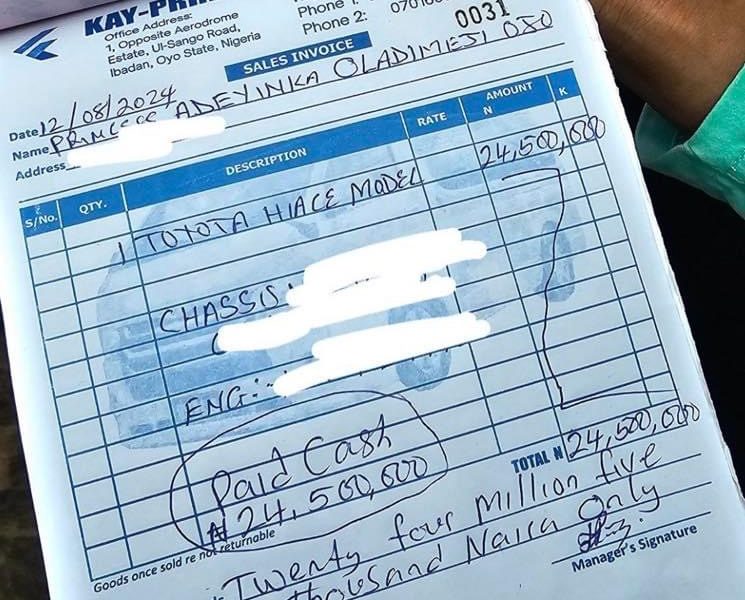 KAY-PRI
Office Address:
1, Opposite Aerodrome
Estate, UI-Sango Road,
Ibadan, Oyo State, Nigeria
Phone 1:
Phone 2: 0701
0031
SALES INVOICE
Date 12/08/2024
Name PRINCESS ADEYINKA OLADIMEJI OJO
Address
S/No. QTY. DESCRIPTION RATE AMOUNT N K
1 TOYOTA HIACE MODEL 24,500,000
CHASSIS
ENG:
Paid Cash
₦24,500,000
TOTAL N 24,500,000
Goods once sold re not returnable
Twenty four million five
thousand Naira Only
Manager's Signature